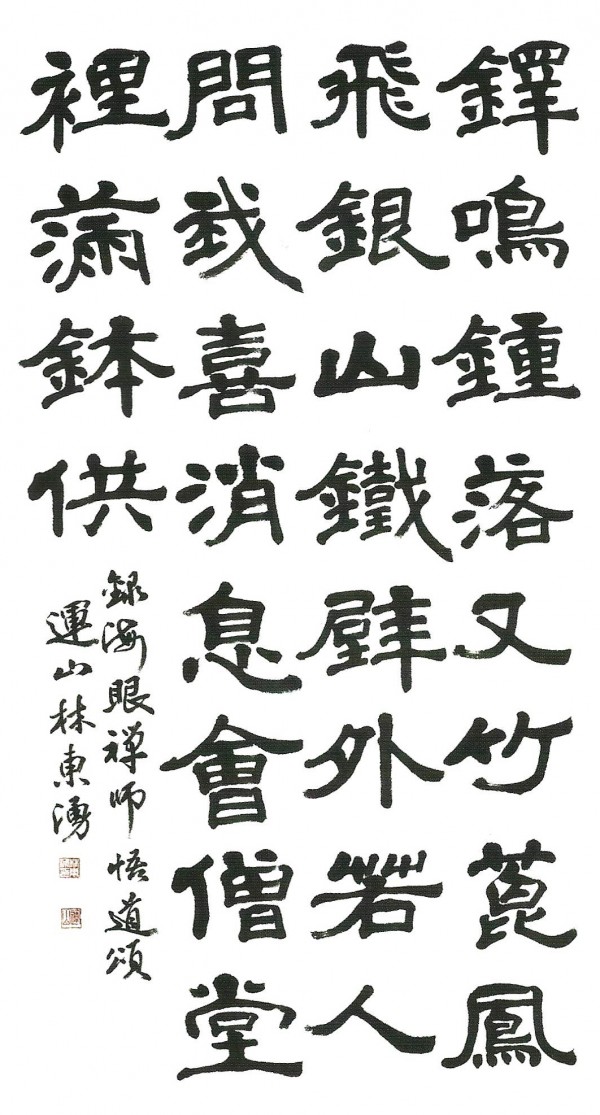 鐸鳴鍾落又竹蓖鳳
飛銀山鐵壁外若人
問我喜消息會僧堂
裡滿鉢供
録海眼禅師悟道頌
運山林東湧